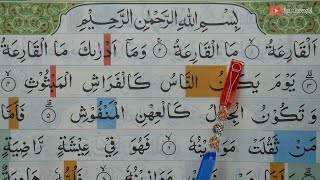 بِسْمِ اللهِ الرَّحْمٰنِ الرَّحِيْمِ
اَلْقَارِعَةُ ۙ ١ مَا الْقَارِعَةُ ۚ ٢ وَمَآ اَدْرٰىكَ مَا الْقَارِعَةُ ۗ
٣ يَوْمَ يَكُوْنُ النَّاسُ كَالْفَرَاشِ الْمَبْثُوْثِ ۙ ٤
وَتَكُوْنُ الْجِبَالُ كَالْعِهْنِ الْمَنْفُوْشِ ۗ ٥ فَاَمَّا
مَنْ ثَقُلَتْ مَوَازِيْنُهٗ ۙ ٦ فَهُوَ فِيْ عِيْشَةٍ رَّاضِيَةٍ